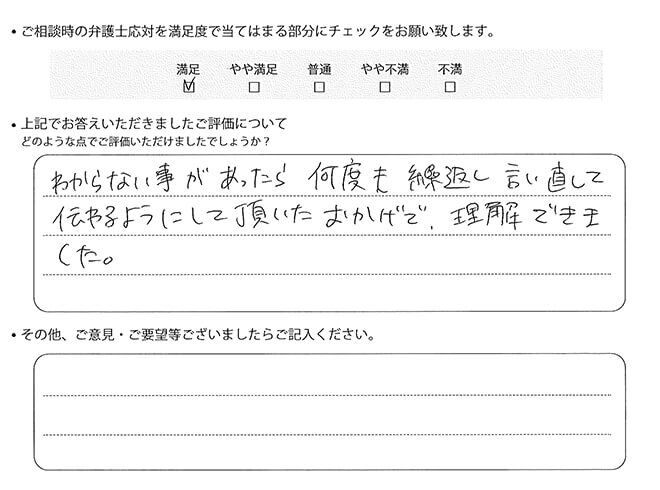 • ご相談時の弁護士応対を満足度で当てはまる部分にチェックをお願い致します。
満足 やや満足 普通 やや不満 不満
☑ ☐ ☐ ☐ ☐
• 上記でお答えいただきましたご評価について
どのような点でご評価いただけましたでしょうか？
わからない事があったら 何度も 繰返し 言い直して
伝わるようにして頂いたおかげで、理解できま
した。
• その他、ご意見・ご要望等ございましたらご記入ください。